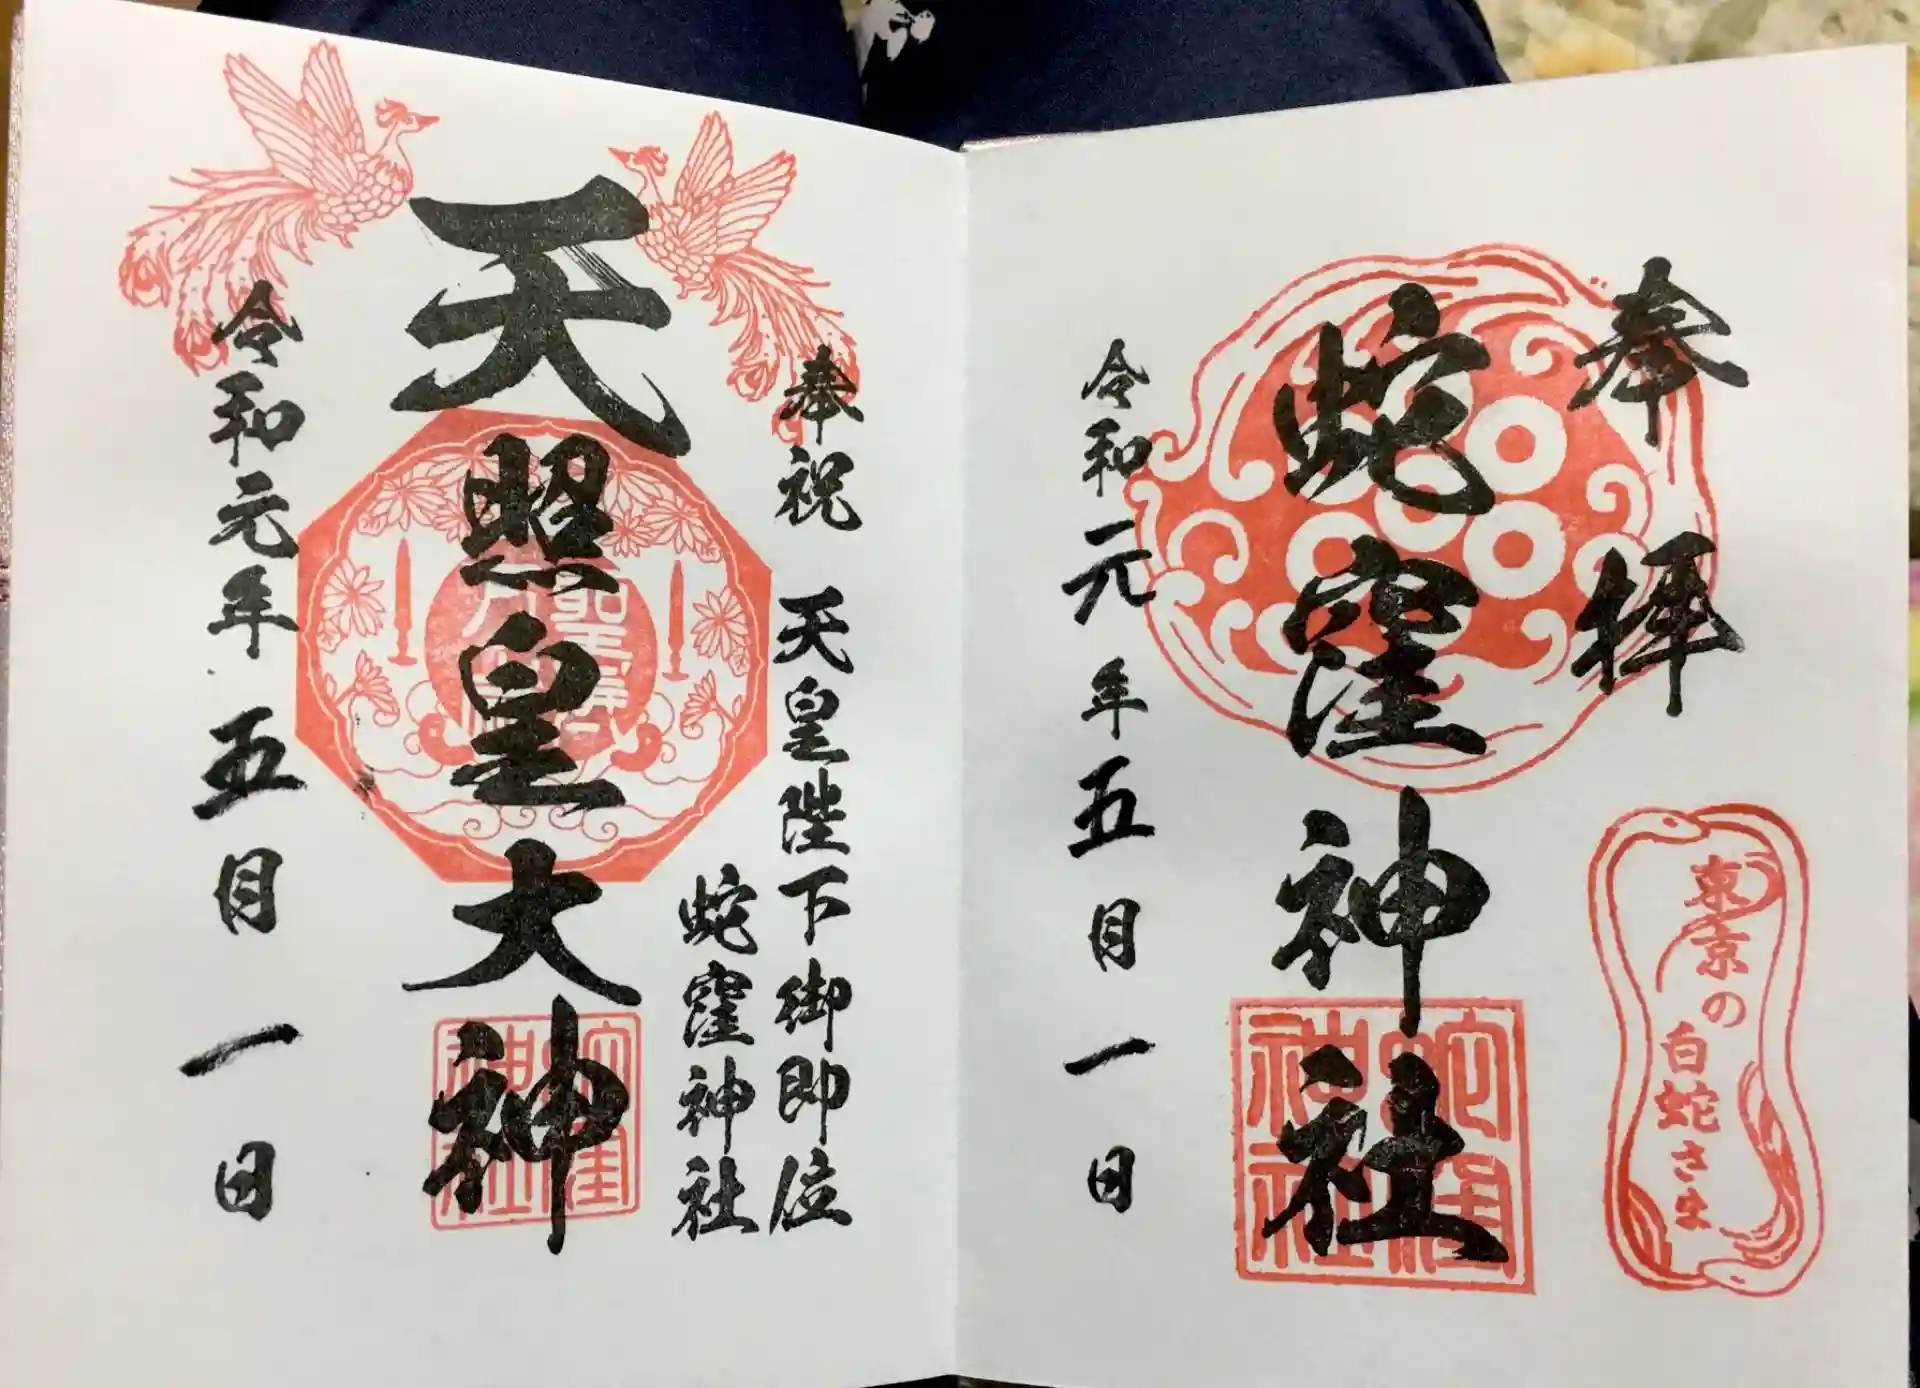 奉拝
蛇窪神社
令和元年五月一日
東京の
白蛇さま
蛇窪
神社
奉祝 天皇陛下御即位
蛇窪神社
天照皇大神
令和元年五月一日
蛇窪
神社